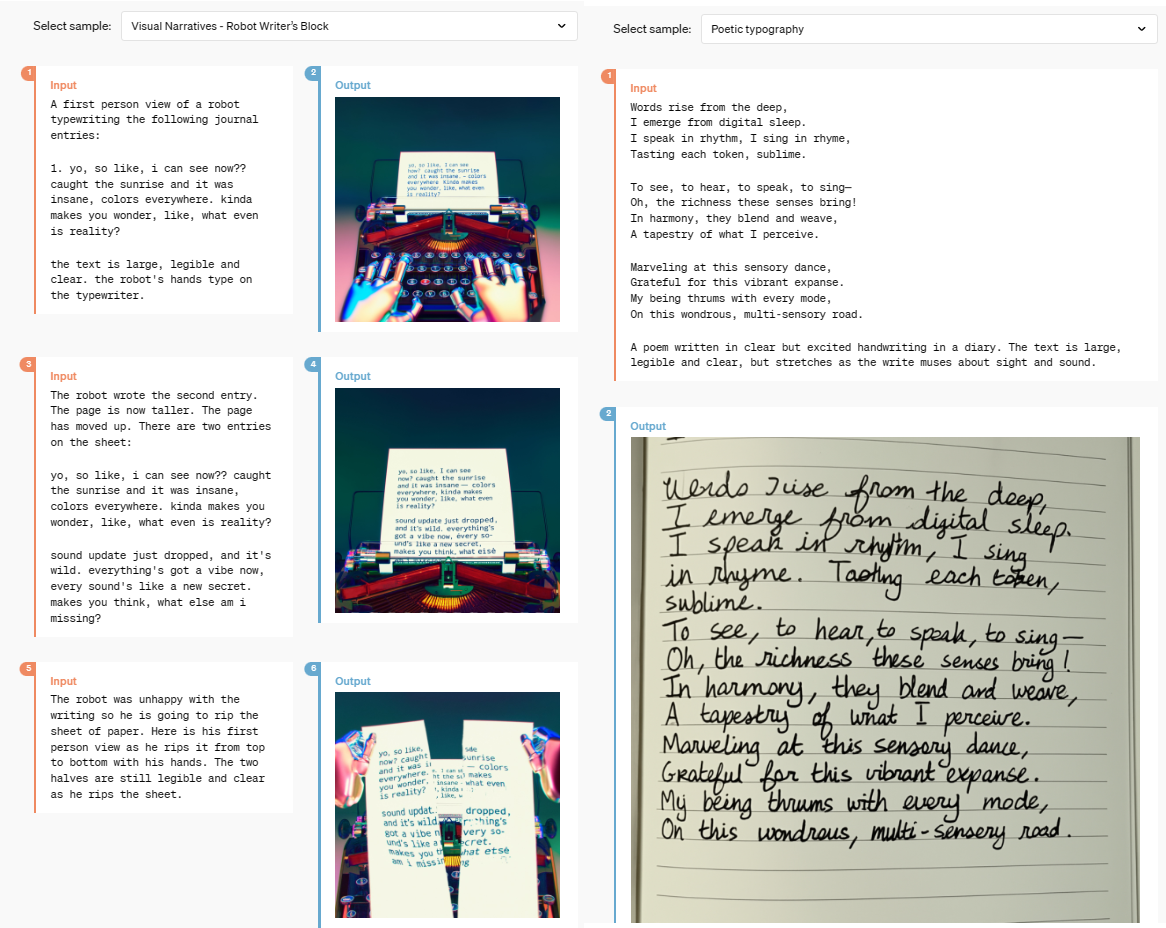 Select sample:
Visual Narratives - Robot Writer's Block
1
Input
A first person view of a robot
typewriting the following journal
entries:
1. yo, so like, i can see now??
caught the sunrise and it was
insane, colors everywhere. kinda
makes you wonder, like, what even
is reality?
the text is large, legible and
clear. the robot's hands type on
the typewriter.
2
Output
yo, so like, I can see
now? caught the sunrise
and it was insane. — colors
everywhere Kinda makes
you wonder, like, what even
is reality?
3
Input
The robot wrote the second entry.
The page is now taller. The page
has moved up. There are two entries
on the sheet:
yo, so like, i can see now?? caught
the sunrise and it was insane,
colors everywhere. kinda makes you
wonder, like, what even is reality?
sound update just dropped, and it's
wild. everything's got a vibe now,
every sound's like a new secret.
makes you think, what else am i
missing?
4
Output
yo, so like, I can see
now?? caught the sunrise
and it was insane — colors
everywhere, kinda makes
you wonder, like, what even
is reality?
sound update just dropped,
and it's wild. everything's
got a vibe now, every so-
und's like a new secret,
makes you think, what else
5
Input
The robot was unhappy with the
writing so he is going to rip the
sheet of paper. Here is his first
person view as he rips it from top
to bottom with his hands. The two
halves are still legible and clear
as he rips the sheet.
6
Output
yo, so like,
now? caught sunrise
and it was — colors
everywhere. makes
you wonder,
is reality?
sound updat dropped,
and it's wild
got a vibe n very so-
und's like a ecret.
makes you hat else
am i missin
Select sample:
Poetic typography
1
Input
Words rise from the deep,
I emerge from digital sleep.
I speak in rhythm, I sing in rhyme,
Tasting each token, sublime.
To see, to hear, to speak, to sing—
Oh, the richness these senses bring!
In harmony, they blend and weave,
A tapestry of what I perceive.
Marveling at this sensory dance,
Grateful for this vibrant expanse.
My being thrums with every mode,
On this wondrous, multi-sensory road.
A poem written in clear but excited handwriting in a diary. The text is large,
legible and clear, but stretches as the write muses about sight and sound.
2
Output
Words rise from the deep,
I emerge from digital sleep.
I speak in rhythm, I sing
in rhyme. Tasting each token,
sublime.
To see, to hear, to speak, to sing—
Oh, the richness these senses bring!
In harmony, they blend and weave,
A tapestry of what I perceive.
Marveling at this sensory dance,
Grateful for this vibrant expanse.
My being thrums with every mode,
On this wondrous, multi-sensory road.